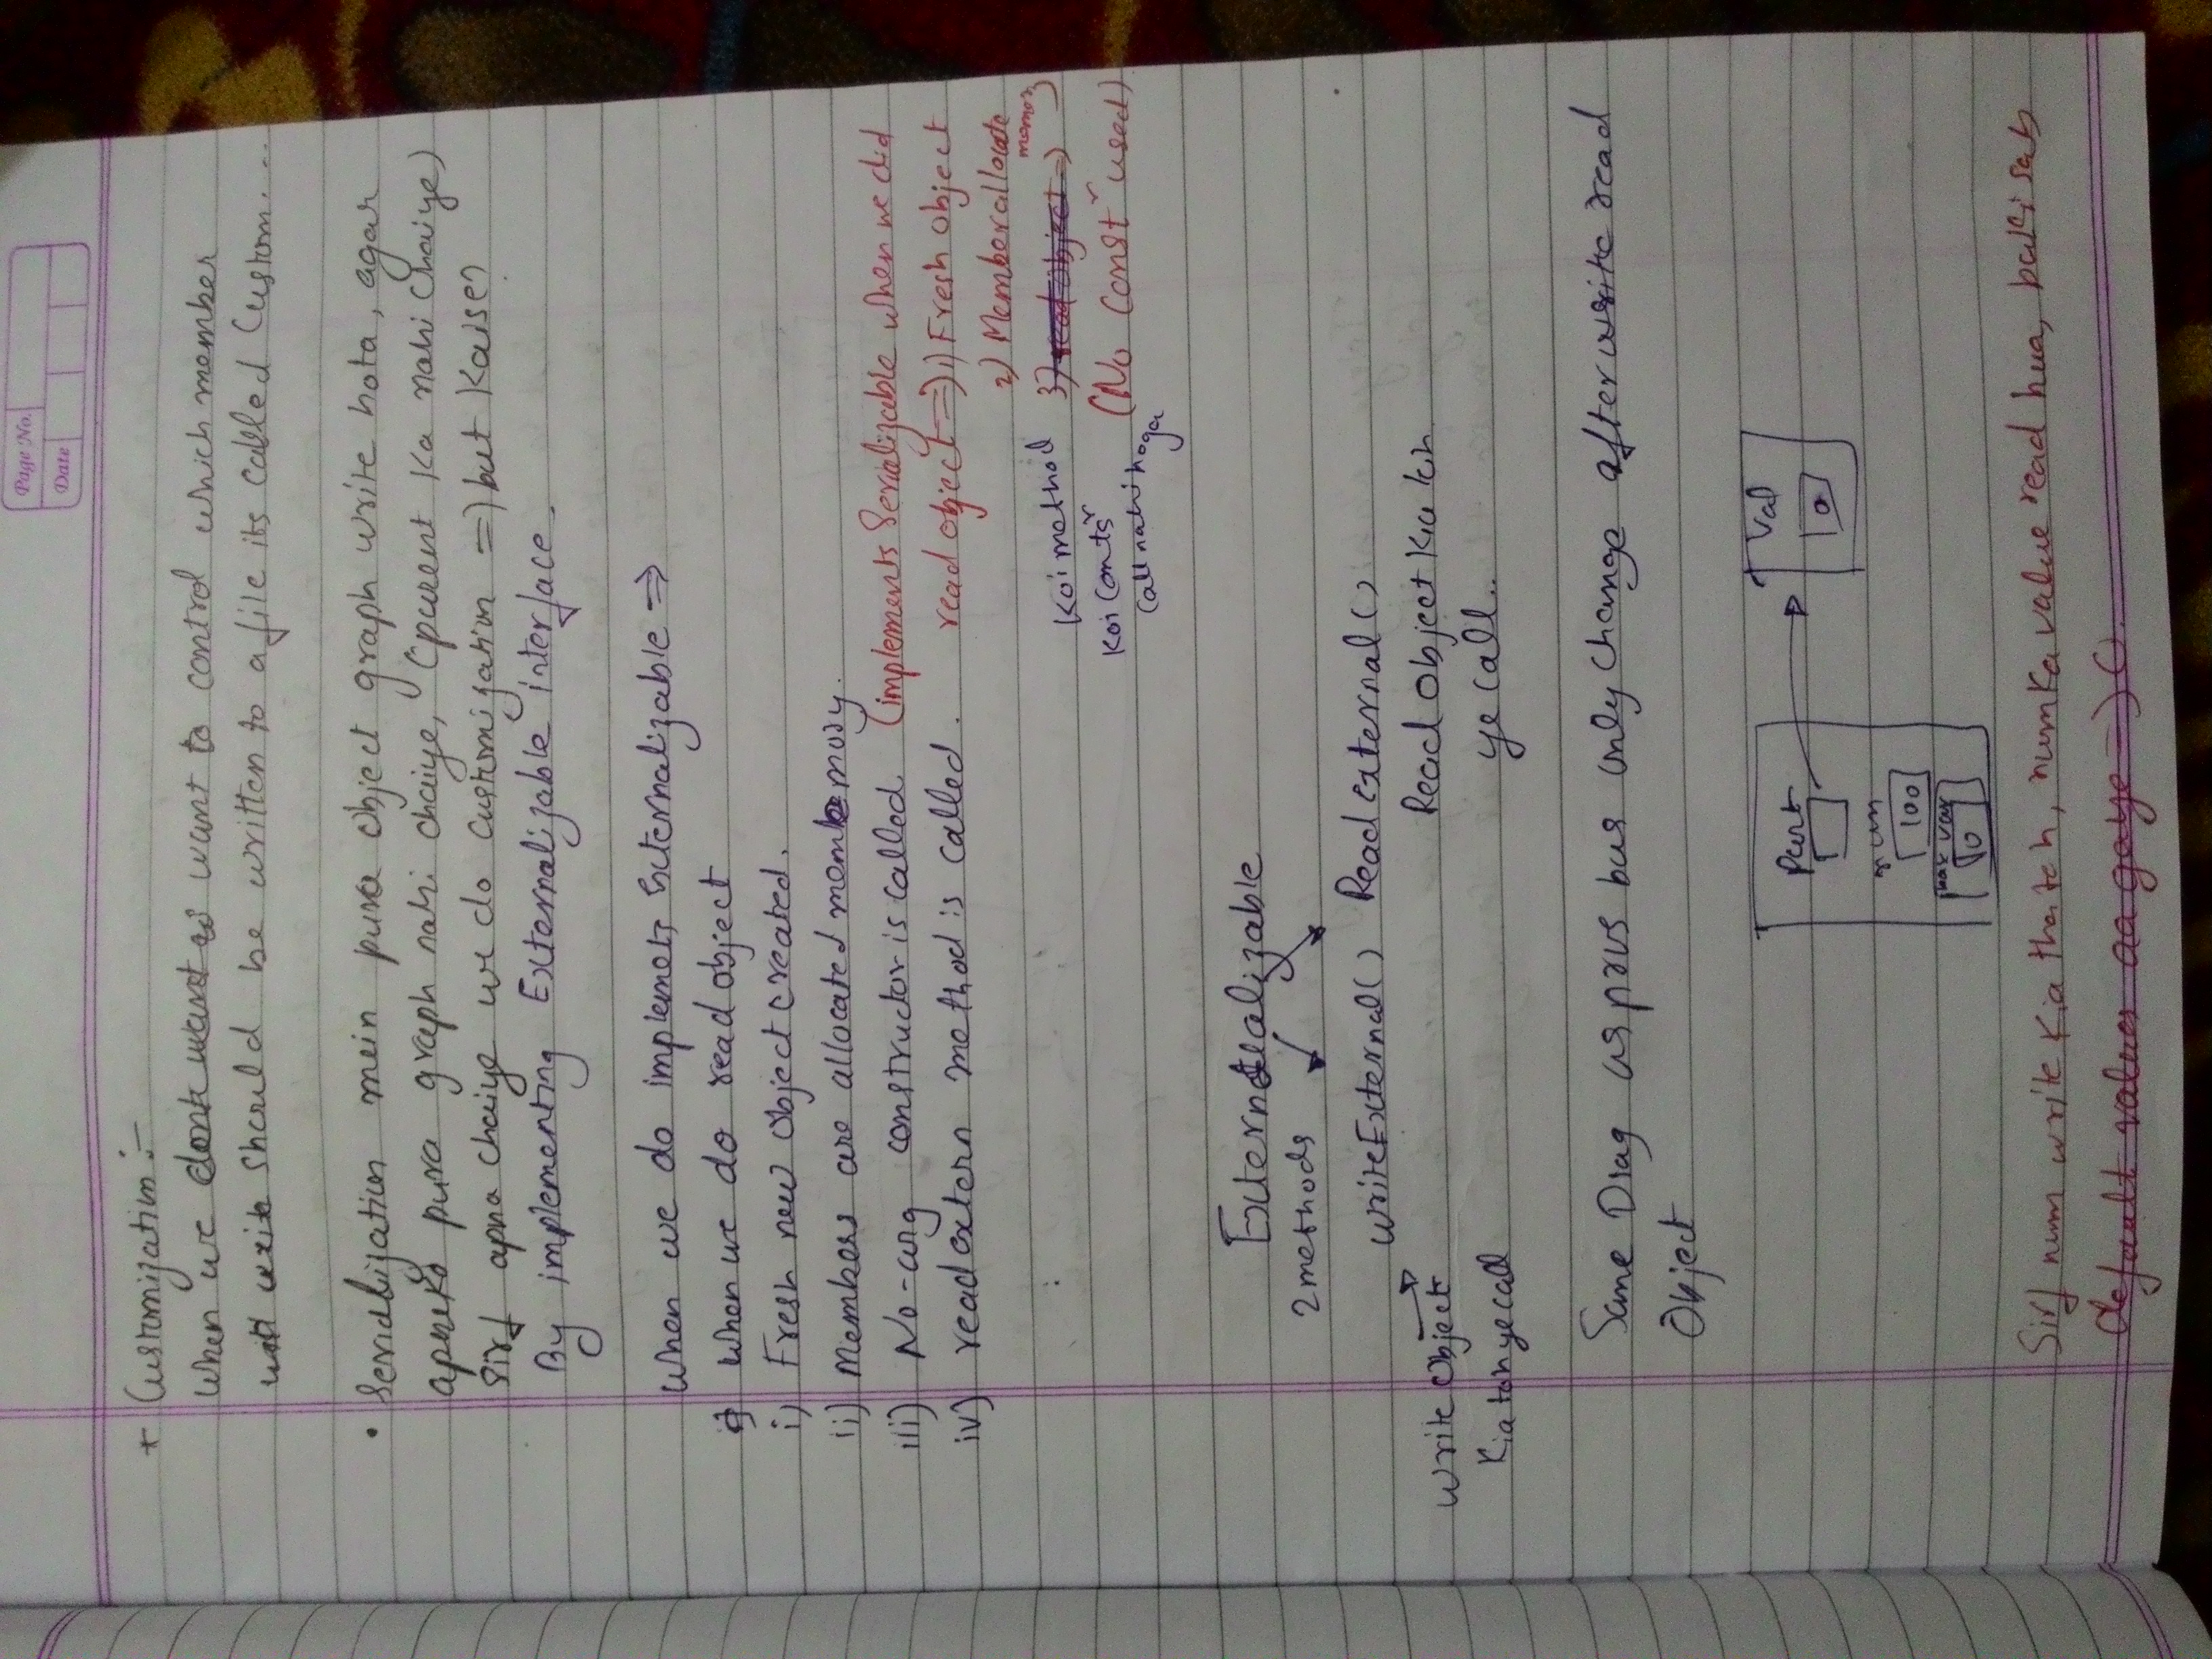 Page No.
Date
* Customization :-
When we dont want to want to control which member
will write should be written to a file its called Custom....
• Serialization mein pura Object graph write hota, agar
apneko pura graph nahi chaiye, (parent Ka nahi Chaiye)
Sirf apna chaiye we do Customization => but Kaise?
By implementing Externalizable interface.
When we do implemets Externalizable =>
When we do read object
i) Fresh new Object created.
ii) Members are allocated memory.
iii) No-arg constructor is called. (implements Serializable when we did
iv) read extern method is called. read object => 1) Fresh Object
2) Member allocate
memory
Koi method 3) read Object =>
Koi Contsr (No Constr used)
Call nahi hoga
Externalizable
2 methods
writeExternal() Read External()
Write Object Read Object Kia tch
Kia toh ye call ye call..
Same Diag as prvs bus only Change after write read
Object
Part Val
0
num
100
var
0
Sirf num write Kia tha toh, num Ka value read hua, baki sab
default values aa gaye => 0.